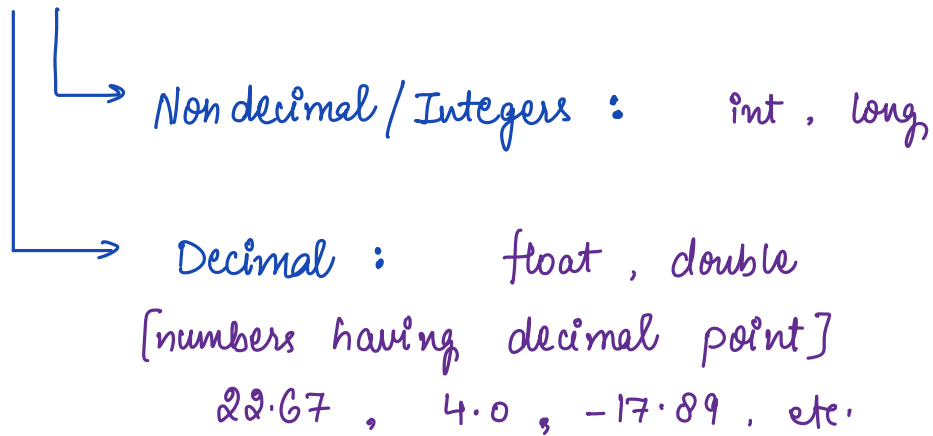 Non decimal / Integers : int , long
Decimal : float , double
[numbers having decimal point]
22.67 , 4.0 , -17.89 , etc.